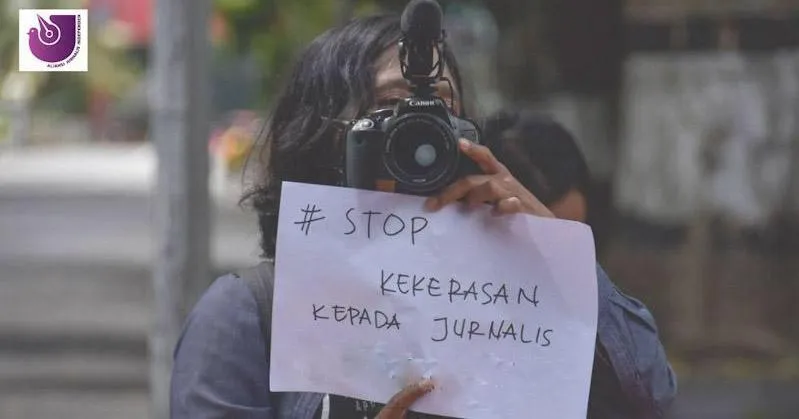 ALIANSI JURNALIS INDEPENDEN
Canon
# STOP
KEKERASAN
KEPADA JURNALIS